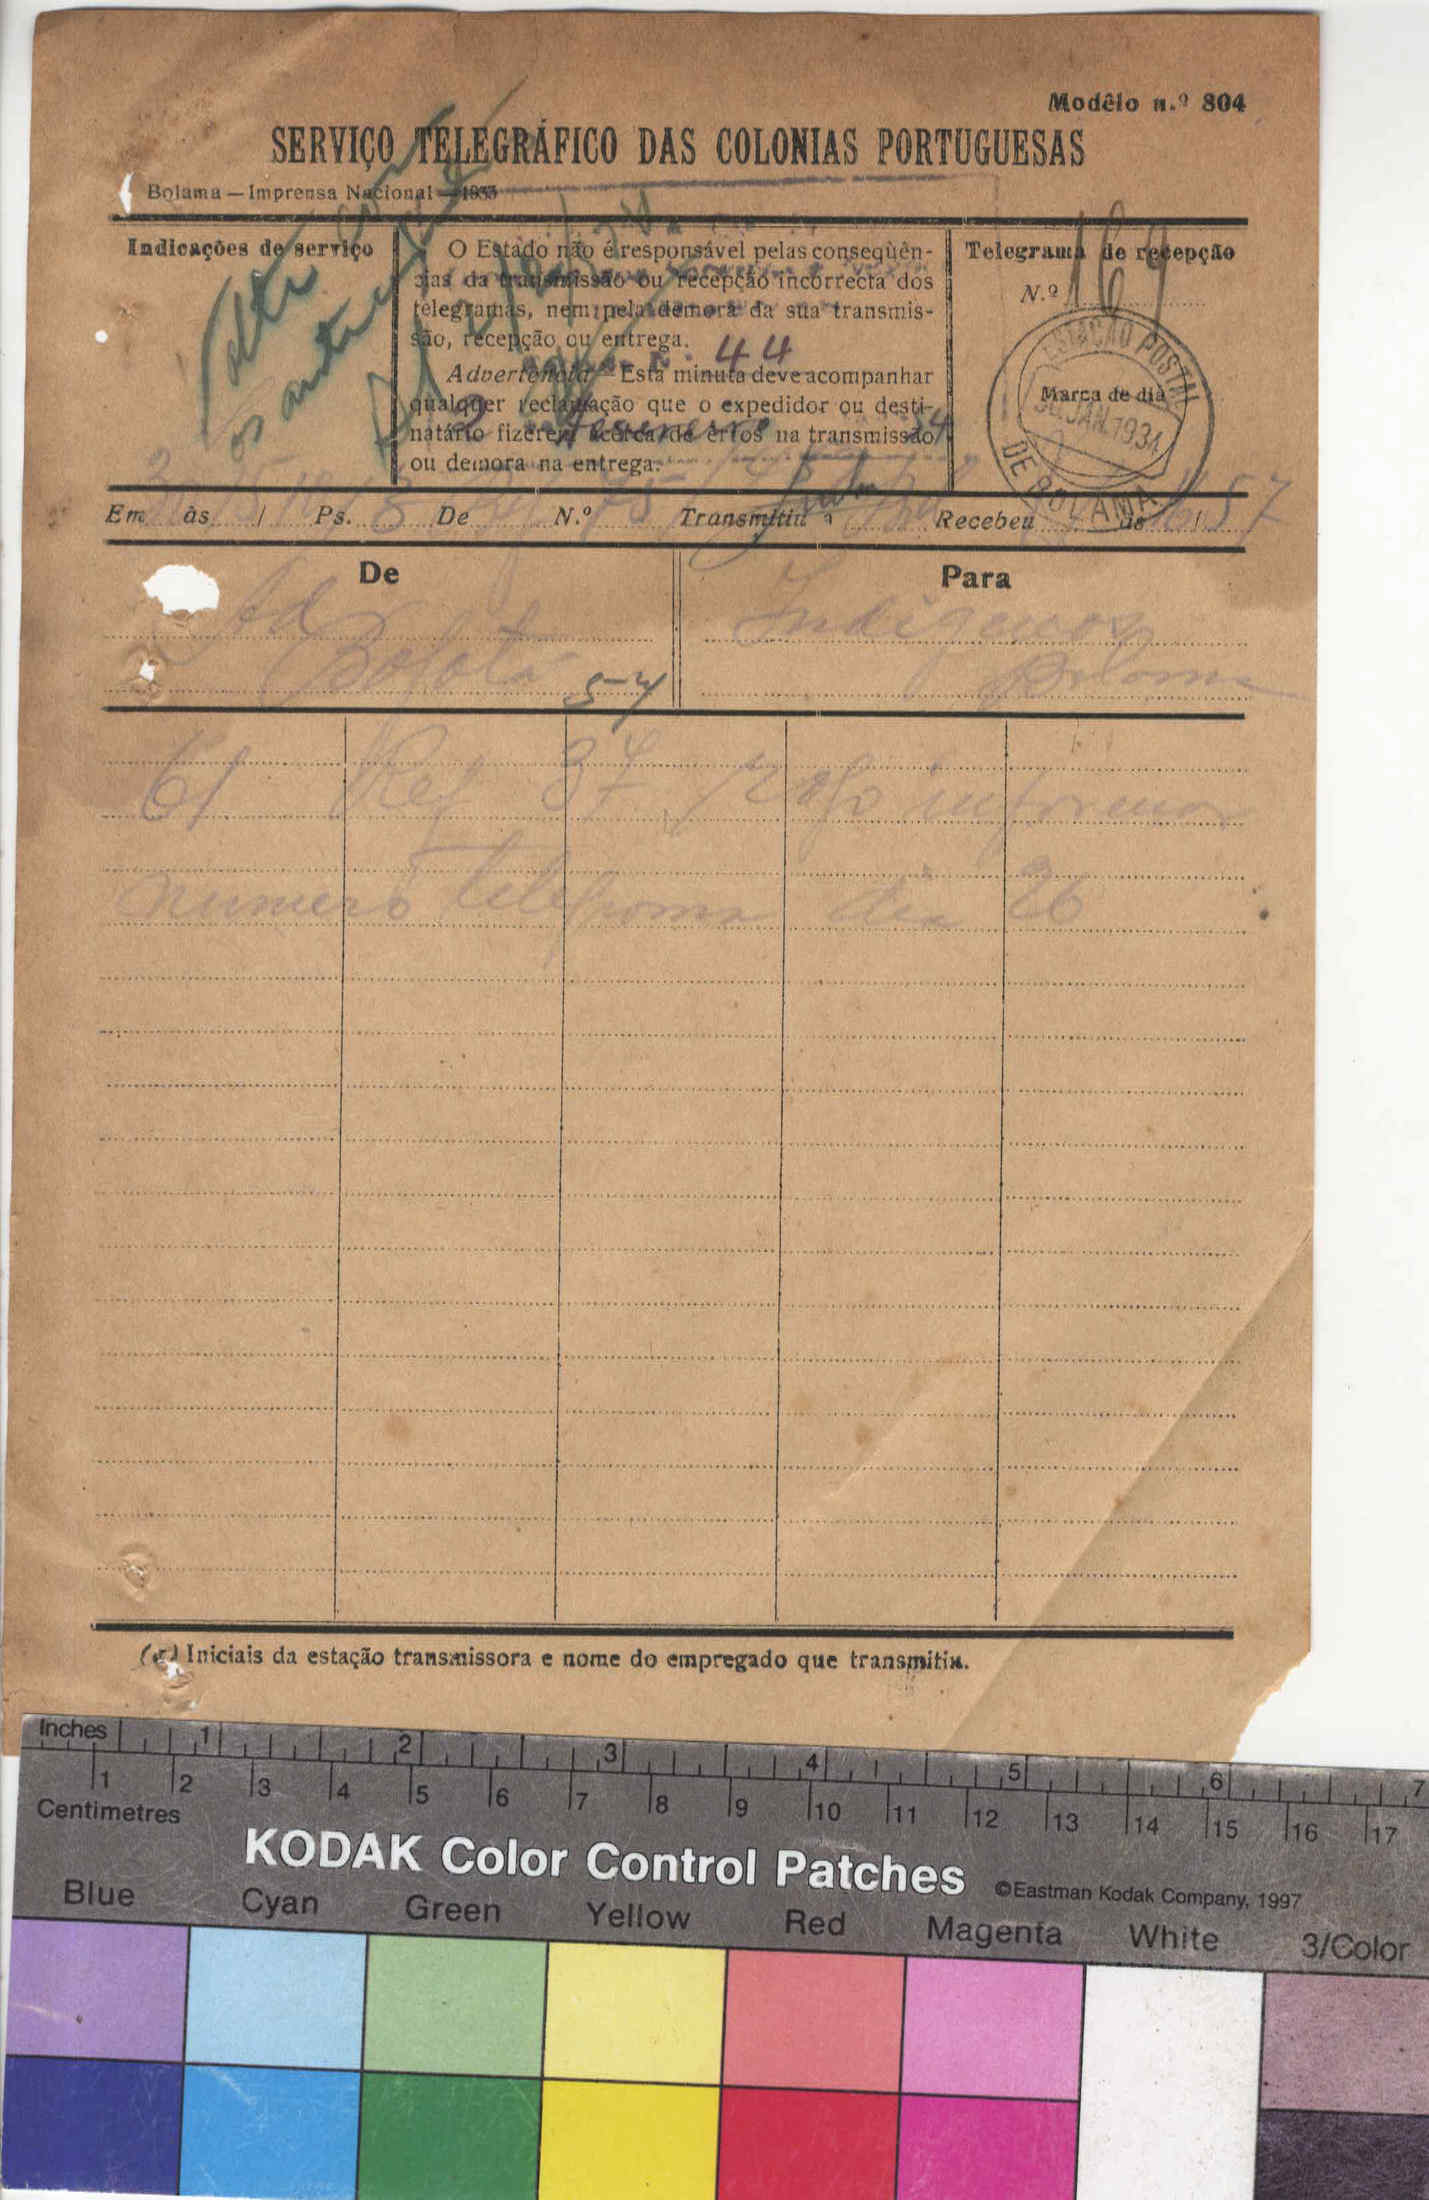 Modêlo n.º 804
SERVIÇO TELEGRÁFICO DAS COLONIAS PORTUGUESAS
Bolama — Imprensa Nacional — 1933
Indicações de serviço
Volte com
os anteriores
O Estado não é responsável pelas conseqùên-
cias da transmissão ou recepção incorrecta dos
telegramas, nem pela demora da sua transmis-
são, recepção ou entrega.
44
Advertência — Esta minuta deve acompanhar
qualquer reclamação que o expedidor ou desti-
natário fizerem acêrca de erros na transmissão
ou demora na entrega.
2 Fevereiro 34
Telegrama de recepção
N.º 169
ESTAÇÃO POSTAL
Marca de dia
30.JAN.1934
DE BOLAMA
Em às / Ps. De N.º Transmitiu Recebeu às /
57
De
Para
Indigenas
Bolama
57
61 Ref 37 rogo informar
numero telegrama dia 26
Iniciais da estação transmissora e nome do empregado que transmitiu.
Inches 1 2 3 4 5 6 7
1 2 3 4 5 6 7 8 9 10 11 12 13 14 15 16 17
Centimetres
KODAK Color Control Patches ©Eastman Kodak Company, 1997
Blue Cyan Green Yellow Red Magenta White 3/Color